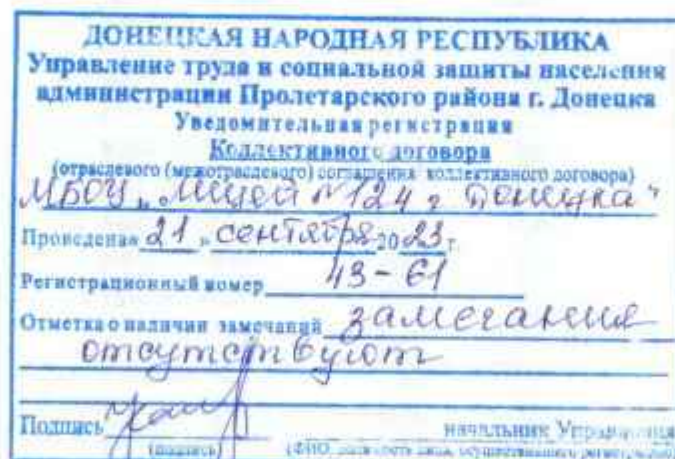 ДОНЕЦКАЯ НАРОДНАЯ РЕСПУБЛИКА
Управление труда и социальной защиты населения
администрации Пролетарского района г. Донецка
Уведомительная регистрация
Коллективного договора
(отраслевого (межотраслевого) соглашения, коллективного договора)
МБОУ "Лицей №124 г Донецка"
Проведена « 21 » сентября 2023 г.
Регистрационный номер 43-61
Отметка о наличии замечаний замечания
отсутствуют
Подпись начальник Управления
(подпись) (ФИО, должность лица, осуществившего регистрацию)